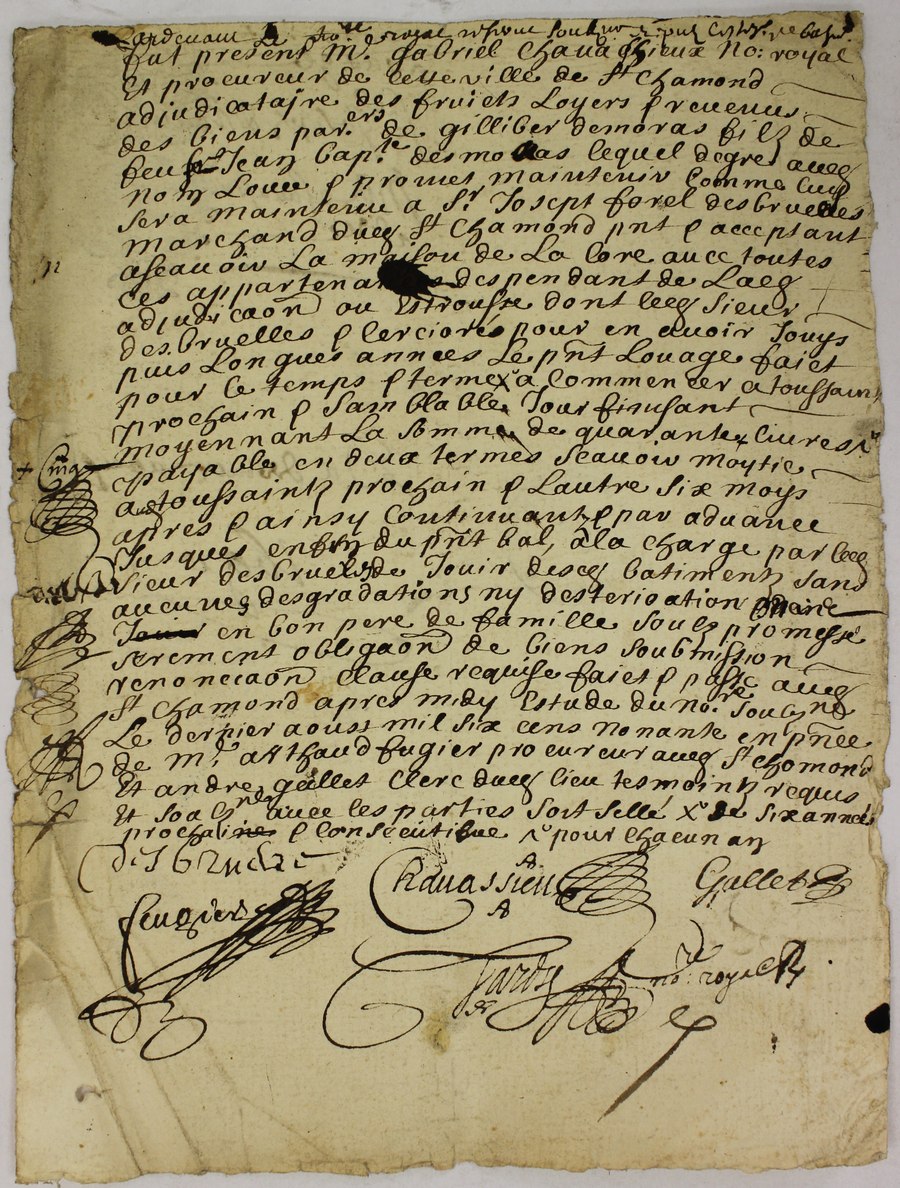 Pardevant le no.re royal
fut present M.e Gabriel Chavassieux No: royal
Et procureur de cette ville de St Chamond
adjudicataire des fruicts Loyers & revenus
des biens par.ers de gilliber demoras filz de
feu Sr Jean bap.te desmoras lequel degre aucq
nom Loue & promet maintenir Comme luy
sera maintenu a Sr Joseph forel desbruelles
marchand ducq St Chamond pnt & acceptant
ascauoir La maison de La Core auec toutes
ces appartenances despendant de Lacq
adjudicaon ou Estrousse dont lecq sieur
desbruelles & pour en auoir Jouys
puis Longues annees Le pnt Louage faict
pour le temps & terme x a Commencer a toussaint
prochain & samblable Jour finissant
moyennant La somme de quarante + liures x
+ Cinq
payable en deux termes scauoir moytie
a toussaintz prochain & Lautre six moys
apres & ainsy Continuant & par aduance
Jusques en fin du pnt bal, a la charge par lecq
sieur desbruelles de Jouir descq batimentz sans
aucunes desgradations ny desterioation
en bon pere de famille soubz promesse
serement obligaon de biens soubmission
renonciaon Clause requise faict & passe aucq
St Chamond apres midy Estude du no.re soubzne
Le dernier aoust mil six cens nonante en pnce
de M.e arthaud fugier procureur aucq St Chomond
Et andre gallet Clerc ducq lieu tesmointz requis
Et soubznes auec les parties soit sellé x de six annes
prochaines & Consecutifue x pour chacun an
Chavassieu
Gallet
feugier
Tardy
no.re royal